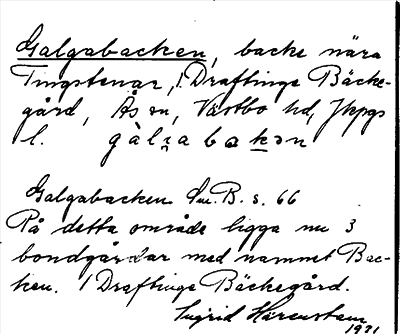 Galgabacken, backe nära
Tingstenar, i Draftinge Bäcke-
gård, Ås sn, Västbo hd, Jkpgs
l. gàlȝabakən
Galgabacken Sm. B. s. 66
På detta område ligga nu 3
bondgårdar med namnet Bac-
ken. / Draftinge Bäckegård.
Ingrid Härenstam
1931